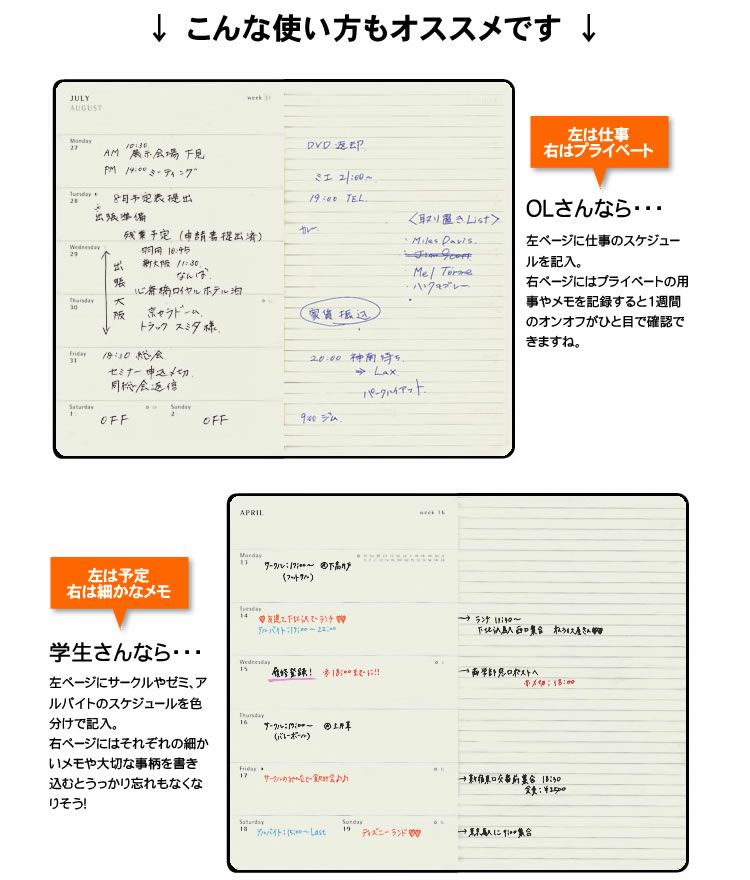 ↓ こんな使い方もオススメです ↓
JULY
AUGUST
week 31
Monday
27
10:30
AM 展示会場 下見
PM 14:00 ミーティング
Tuesday
28
8月予定表提出
出張準備
残業予定 (申請書提出済)
Wednesday
29
羽田 10:45
新大阪 11:30
なんば
心斎橋ロイヤルホテル泊
出張大阪
Thursday
30
京セラドーム
トラック スミダ様
Friday
31
18:30 総会
セミナー申込〆切
月総会返信
Saturday
1
OFF
Sunday
2
OFF
DVD 返却
ミエ 21:00〜
19:00 TEL
カレー
〈取り置きList〉
・Miles Davis
・Mel Torme
家賃振込
20:00 神南待ち
⇒ Lax
パークハイアット
9:00 ジム
左は仕事
右はプライベート
OLさんなら・・・
左ページに仕事のスケジュー
ルを記入。
右ページにはプライベートの用
事やメモを記録すると1週間
のオンオフがひと目で確認で
きますね。
左は予定
右は細かなメモ
学生さんなら・・・
左ページにサークルやゼミ、ア
ルバイトのスケジュールを色
分けで記入。
右ページにはそれぞれの細か
いメモや大切な事柄を書き
込むとうっかり忘れもなくな
りそう!
APRIL
week 16
Monday
13
サークル:17:00〜 @下高井戸
(フットサル)
Tuesday
14
♥友達と下北沢でランチ♥♥
アルバイト:17:00〜22:00
→ランチ 11:30〜
下北沢駅 西口集合
Wednesday
15
履修登録!
※18:00までに!!
→商学部窓口ポストへ
※〆切:18:00
Thursday
16
サークル:17:00〜
(バレーボール)
Friday
17
サークルのみんなで飲み会♪♪
→新宿東口交番前集合 18:30
会費:¥2500
Saturday
18
アルバイト:15:00〜Last
Sunday
19
ディズニーランド♥♥
→東京駅に9:00集合